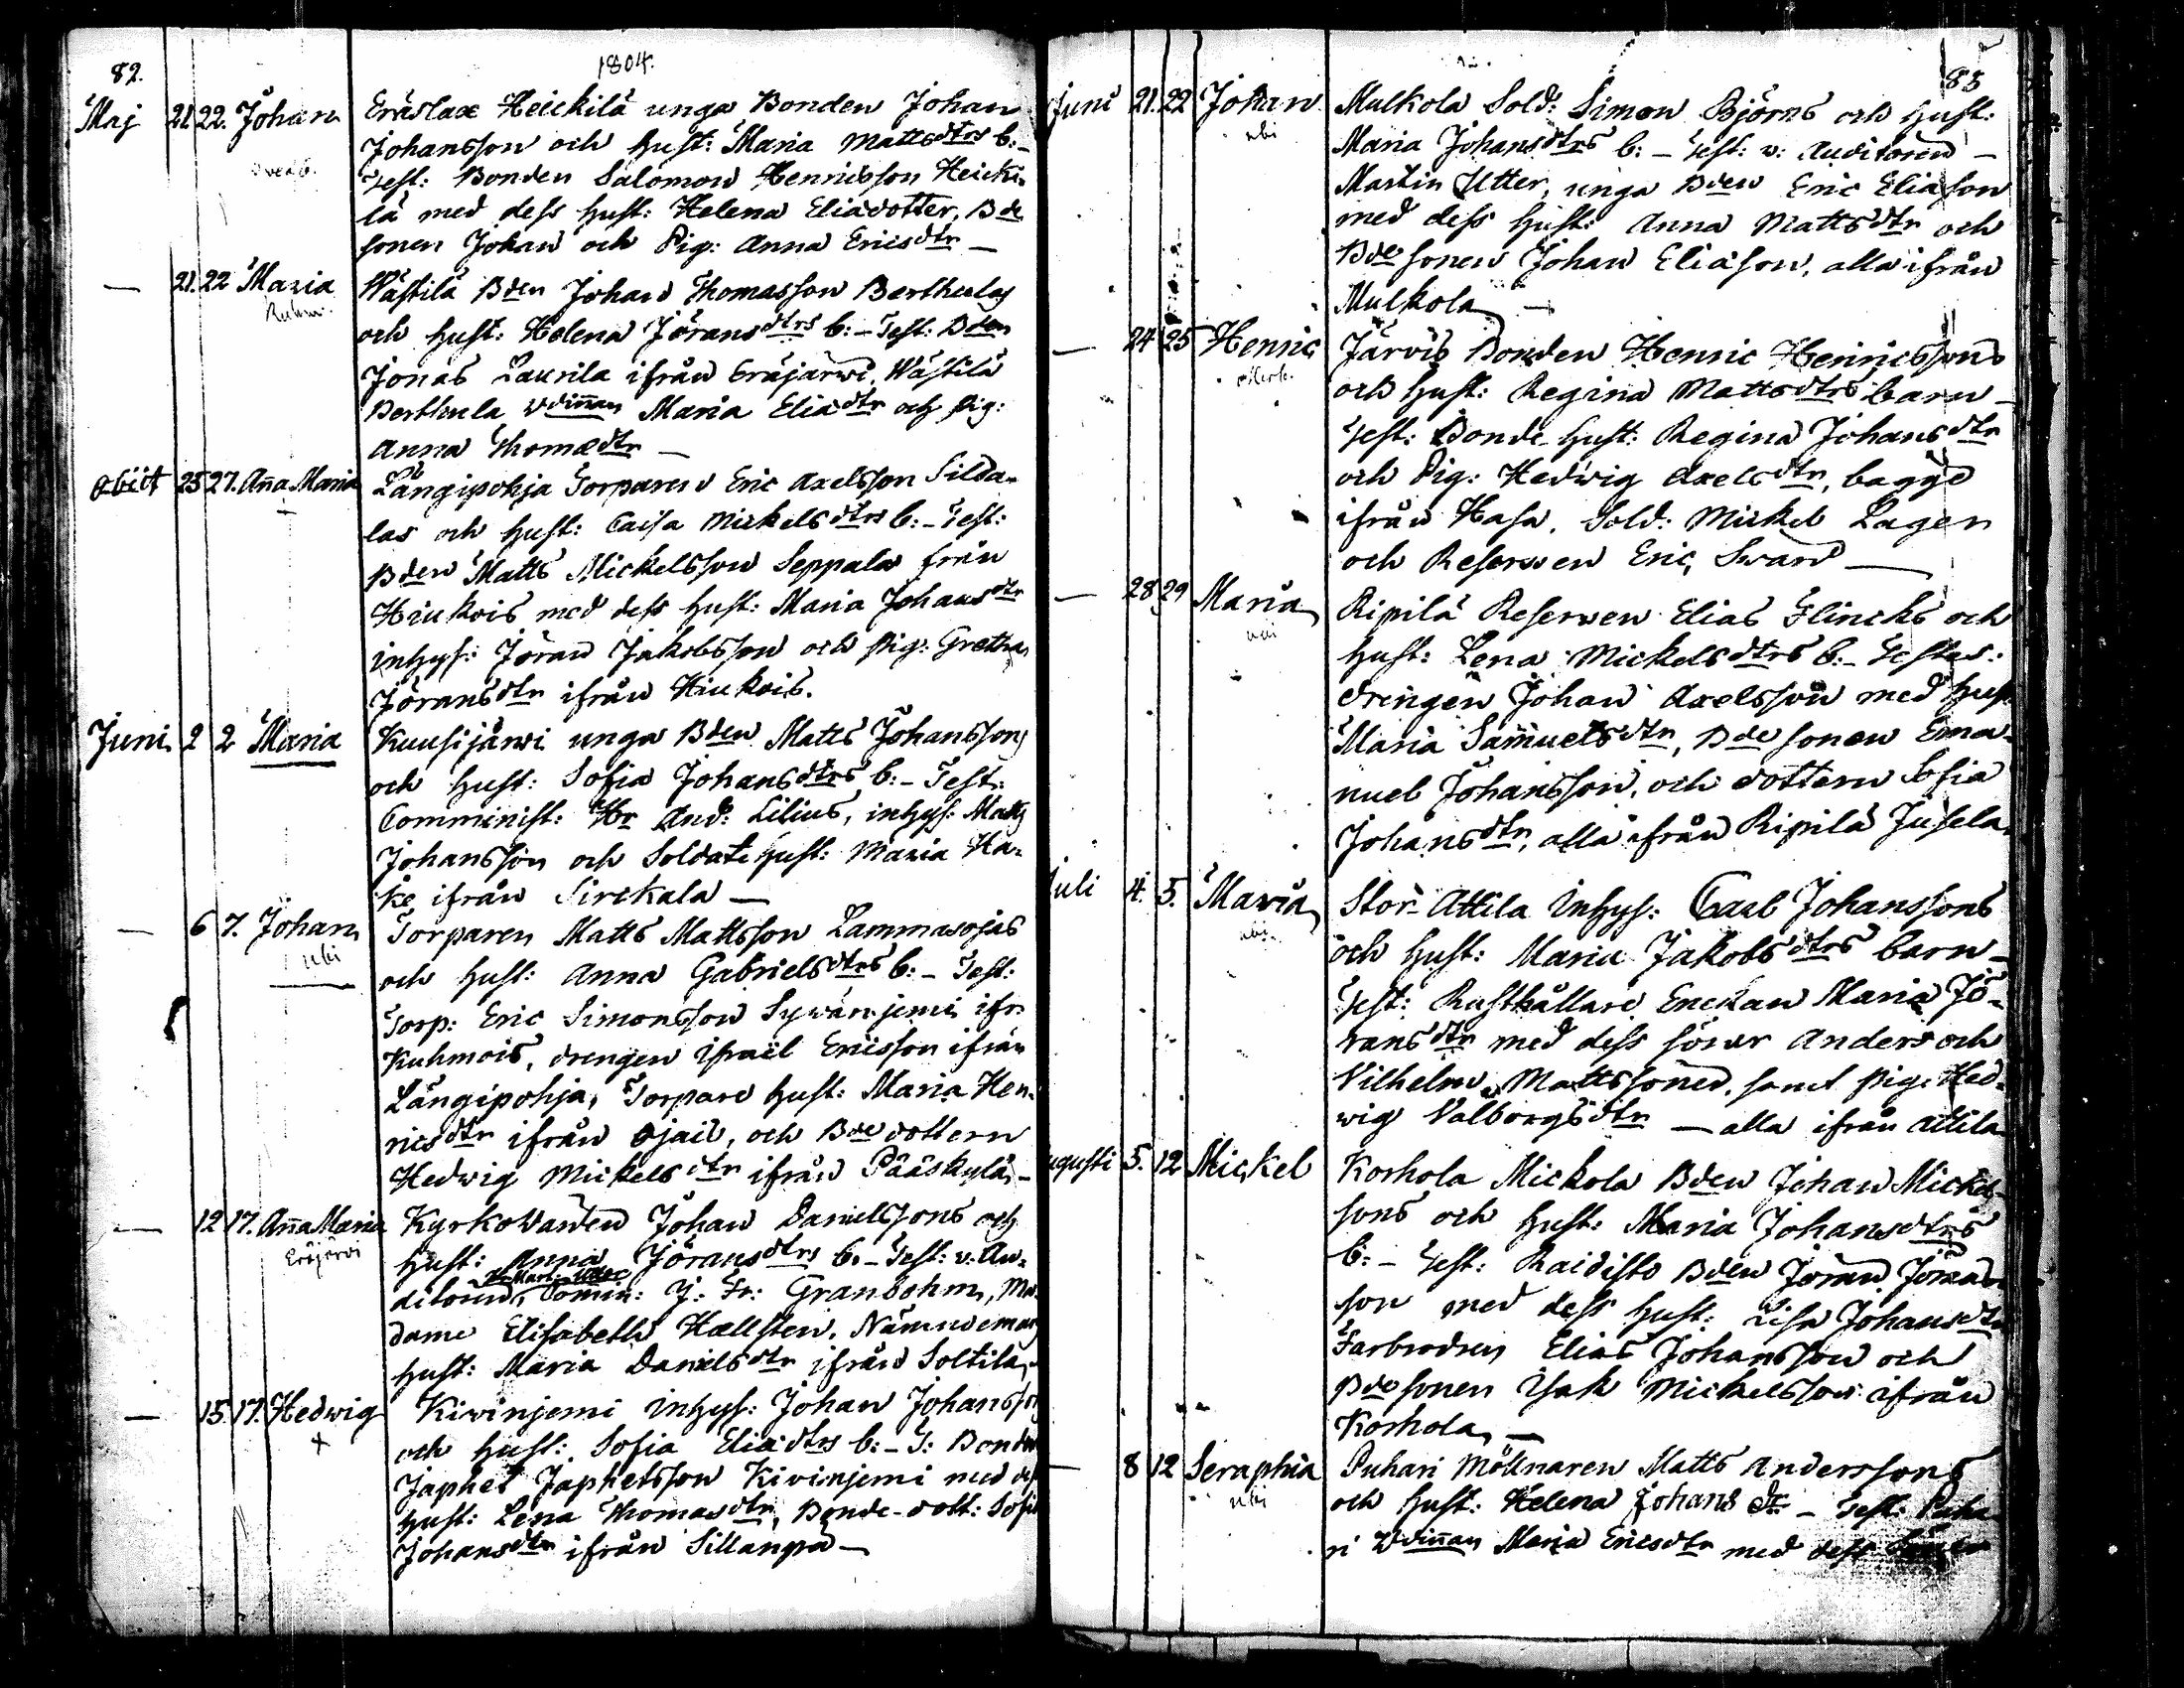 82.
1804.
Maj 21 22. Johan Eräslax Heickilä unga Bonden Johan
Johansson och hust: Maria Mattsdtrs b:-
Test: Bonden Salomon Henricsson Heicki-
lä med dess hust: Helena Eliædotter, Bde
sonen Johan och Pig: Anna Ericsdtr —
— 21. 22 Maria Wästilä Bden Johan Thomasson Berthulas
Kuhm.
och hust: Helena Jöransdtrs b:- Test: Bden
Jonas Laurila ifrån Eräjärwi, Wästilä
Berthula Wdinnan Maria Eliædtr och Pig:
Anna Thomædtr —
obiit 25 27. Aña Maria Långipohja Torparen Eric Axelsson Silda-
las och hust: Caisa Mickelsdtrs b:- Test:
Bden Matts Mickelsson Seppala från
Hiukois med dess hust: Maria Johansdtr
inhys: Jöran Jakobsson och pig: Gretha
Jöransdtr ifrån Hiukois.
Juni 2 2 Maria Kuusijärwi unga Bden Matts Johanssons
och hust: Sofia Johansdtrs b:- Test:
Comminist: Hr And: Lilius, inhys: Matts
Johansson och Soldate hust: Maria Ha-
ke ifrån Sirckala —
— 6 7. Johan Torparen Matts Mattsson Lammasojas
ubi
och hust: Anna Gabrielsdtrs b:- Test:
Torp: Eric Simonsson Sywänjemi ifr.
Kuhmois, drengen Israël Ericsson ifrån
Långipohja, Torpare hust: Maria Hen-
ricsdtr ifrån Ojais, och Bde dottern
Hedwig Mickelsdtr ifrån Pääskylä —
— 12 17. Aña Maria Kyrkowarden Johan Danielssons och
Eräjärvi
hust: Anna Jöransdtrs b:- Test: v: Au-
Hr Mart: Utter
ditoren, Comin: J. Fr: Granbohm, Ma-
dame Elisabeth Hællsten, Nämndeman
hust: Maria Danielsdtr ifrån Soltila
— 15. 17. Hedwig Kivinjemi inhys: Johan Johanssons
+
och hust: Sofia Eliædtrs b:- T: Bonden
Japhet Japhetsson Kivinjemi med dess
hust: Lena Thomasdtr, Bonde-dott: Sofia
Johansdtr ifrån Sillanpä —
83
Juni 21. 22 Johan Mulkola Sold: Simon Björns och hust:
ubi
Maria Johansdtrs b: - Test: v: Auditoren —
Martin Utter, unga Bden Eric Eliasson
med dess hust: Anna Mattsdtr och
Bde sonen Johan Eliasson, alla ifrån
Mulkola —
— 24 25 Henric Järvis Bonden Henric Henricssons
och hust: Regina Mattsdtrs barn —
Test: Bonde hust: Regina Johansdtr
och Pig: Hedwig Axelsdtr, bägge
ifrån Hasa, Sold: Mickel Lager
och Reserwen Eric Sward —
— 28 29 Maria Ripilä Reserwen Elias Flincks och
ubi
hust: Lena Mickelsdtrs b:- Testes:
drengen Johan Axelsson med hust
Maria Samuelsdtr, Bde sonen Ema-
nuel Johansson, och dottern Sofia
Johansdtr, alla ifrån Ripilä Jusela
Juli 4. 5. Maria Stor-Attila inhys: Carl Johanssons
ubi
och hust: Maria Jakobsdtrs barn —
Test: Rusthållare Enckan Maria Jö-
ransdtr med dess söner Anders och
Vilhelm Mattssöner, samt pig: Hed-
wig Valborgsdtr — alla ifrån Attila
Augusti 5. 12 Mickel Korhola Mickola Bden Johan Mickels-
sons och hust: Maria Johansdtrs
b: - Test: Raidisto Bden Jöran Jörans-
son med dess hust: Lisa Johansdtr
Farbrodren Elias Johansson och
Bde sonen Isak Mickelsson ifrån
Korhola —
— 8 12 Seraphia Puhari Möllnaren Matts Anderssons
ubi
och hust: Helena Johans dr — Test: Puha-
ri Wdinnan Maria Ericsdtr med dess